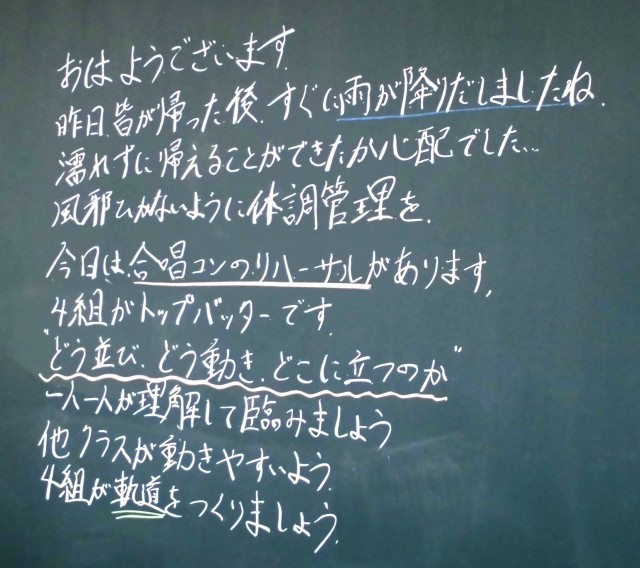 おはようございます.
昨日.皆が帰った後.すぐに雨が降りだしましたね.
濡れずに帰えることができたか心配でした...
風邪ひかないように体調管理を.
今日は.合唱コンのリハーサルがあります.
4組がトップバッターです.
"どう並び、どう動き、どこに立つのか"
一人一人が理解して臨みましょう
他クラスが動きやすいよう.
4組が軌道をつくりましょう.